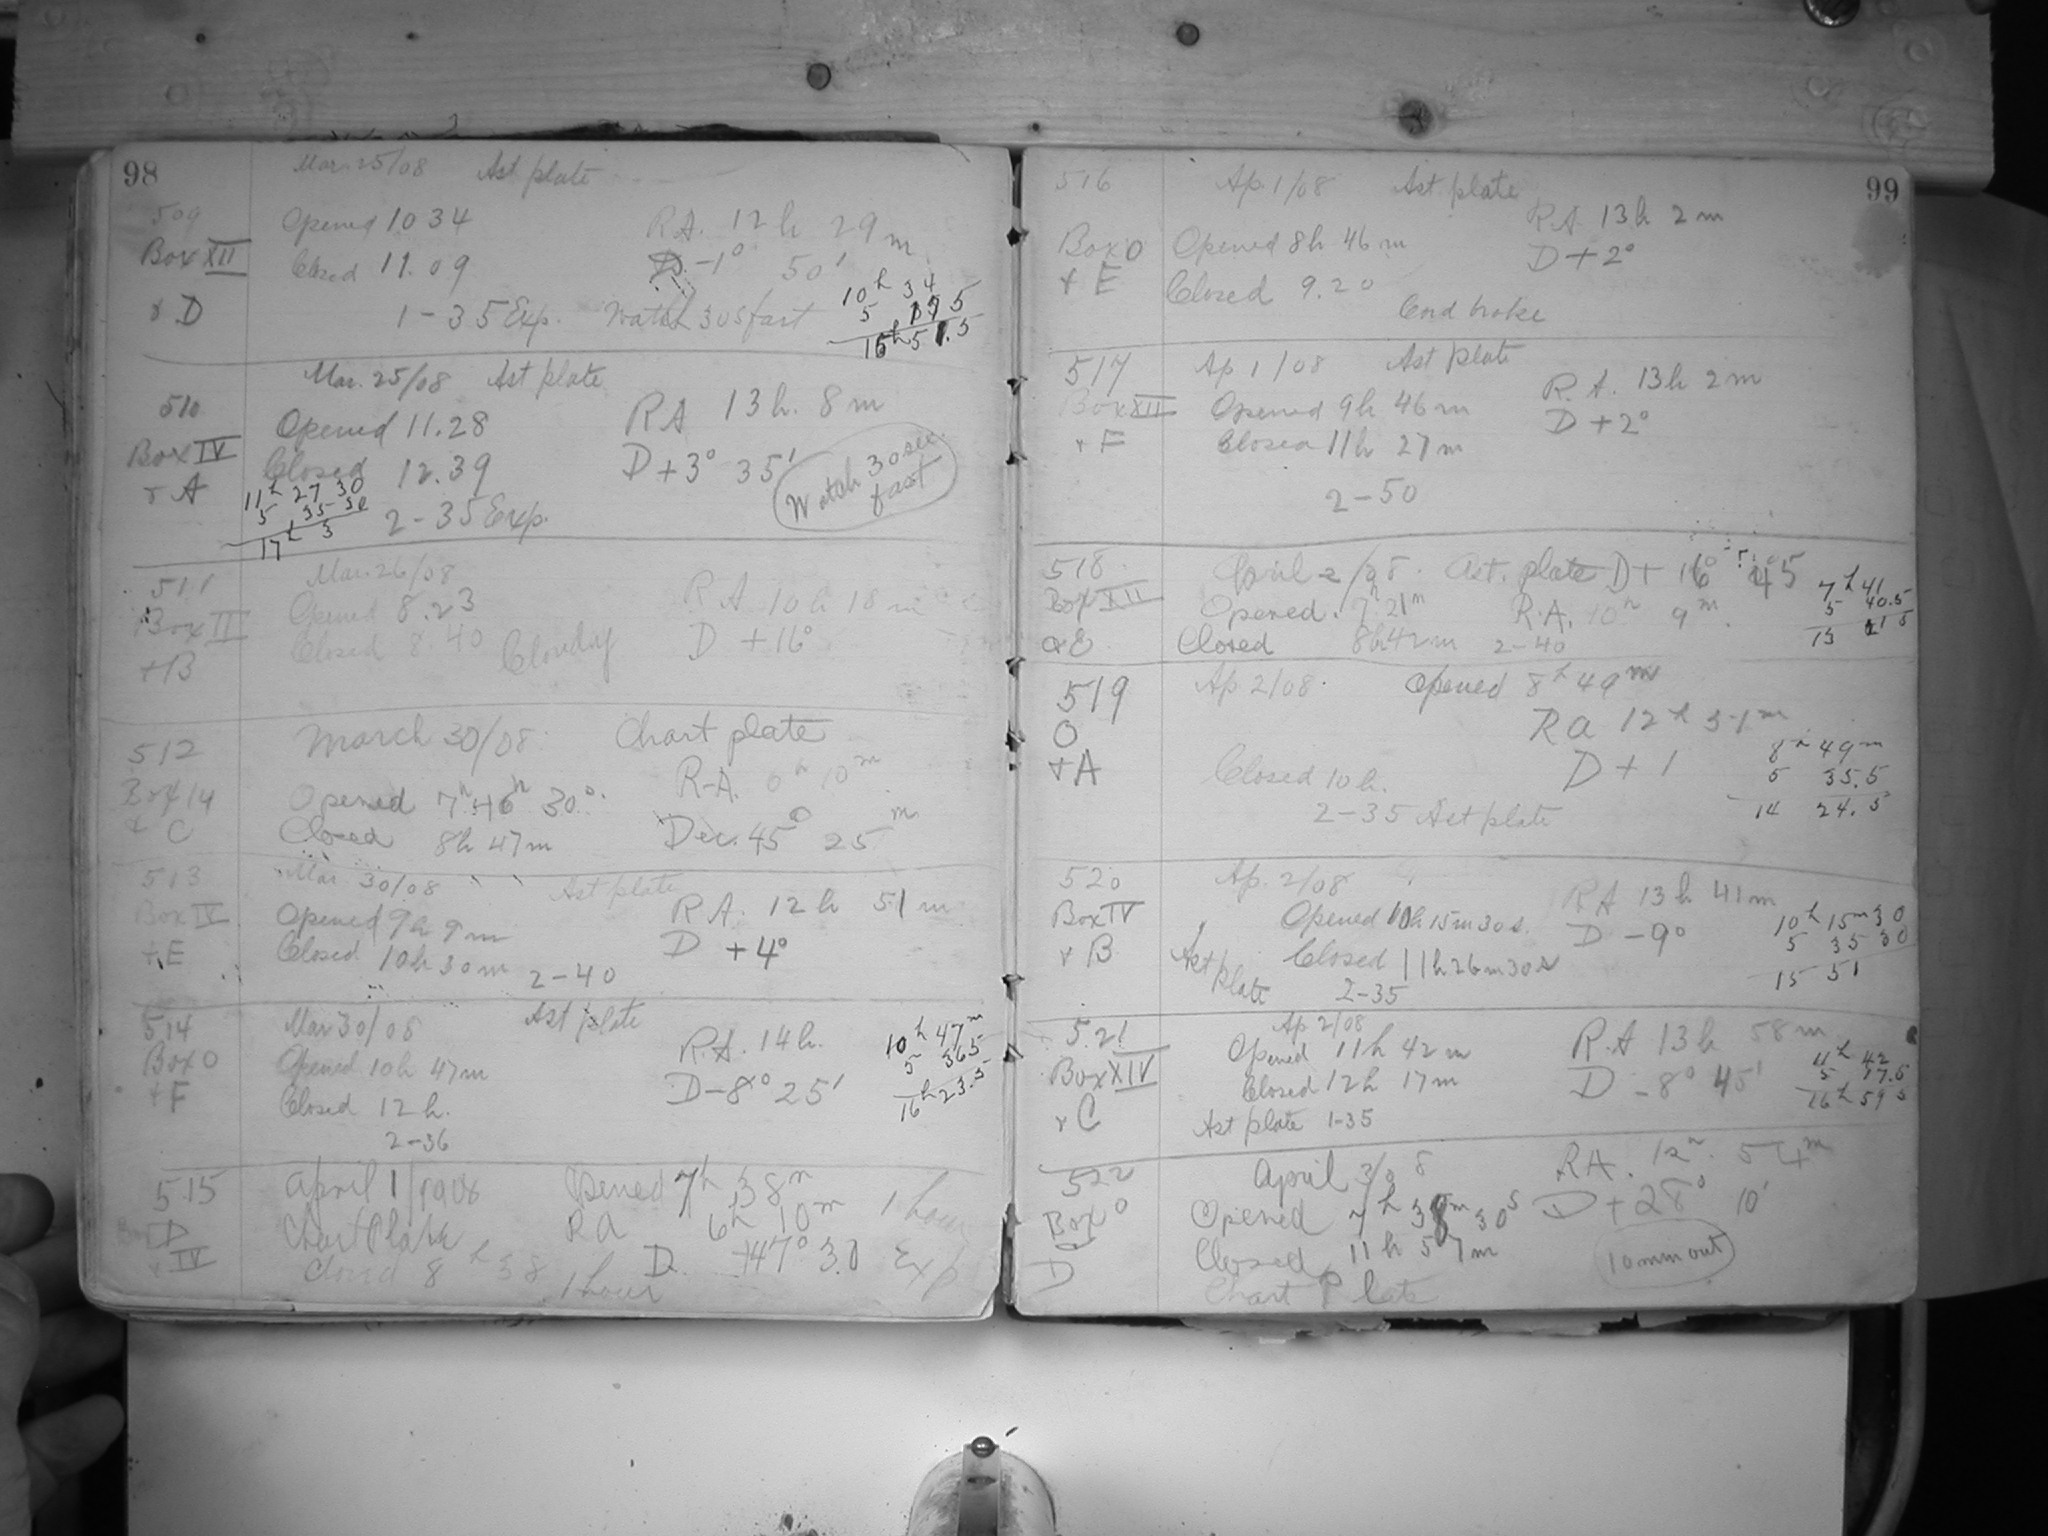 98
Mar. 25/08 Ast plate
509
Opened 10 34
R.A. 12h 29m
Box XII
Closed 11.09
D. -1° 50'
+ D
1-35 Exp. Watch 30s fast
10h 34
5
16h 51.5
Mar. 25/08 Ast plate
510
Opened 11.28
RA 13h. 8m
Box IV
Closed 12.39
D +3° 35'
Watch 30 sec. fast
+ A
11h 27 30
5 35 30
17h 3
2-35 Exp.
511
Mar. 26/08
Box II
Opened 8.23
RA 10h 18m
Closed 8.40 Cloudy
D +16°
+B
512
March 30/08. Chart plate
Box 14
Opened 7h 46m 30s.
R.A. 6h 10m
+ C
Closed 8h 47m
Dec. 45° 25m
513
Mar 30/08 Ast plate
Box IV
Opened 9h 9m
RA. 12h 51m
+E
Closed 10h 30m 2-40
D +4°
514
Mar 30/08 Ast plate
Box 0
Opened 10h 47m
R.A. 14h.
10h 47m
5 36.5
16h 23.5
+F
Closed 12h.
D -8° 25'
2-36
515
April 1/1908 Opened 7h 38m
D
Chart Plate RA 6h 10m 1 hour
+ IV
Closed 8h 38 1 hour D. +47° 30 Exp
99
516
Ap. 1/08 Ast plate
R.A. 13h 2m
Box 0
Opened 8h 46m
D +2°
+ E
Closed 9.20
Cord broke
517
Ap 1/08 Ast plate
R.A. 13h 2m
Box XII
Opened 9h 46m
D +2°
+ F
Closed 11h 27m
2-50
518
April 2/08. Ast. plate D + 16° 45
7h 41
5 40.5
13 21 5
Box XII
Opened. 7h 21m R.A. 10h 9m.
+E
Closed 8h42m 2-40
519
Ap. 2/08. Opened 8h 49m
O
Ra 12h 51m
+A
Closed 10h.
D + 1
8h 49m
5 35.5
14 24.5
2-35 Ast plate
520
Ap. 2/08
RA 13h 41m
Box IV
Opened 10h 15m 30s.
D -9°
10h 15m 30
5 35 30
15 51
+ B
Ast plate
Closed 11h 26m 30s
2-35
521
Ap 2/08
Box XIV
Opened 11h 42m
R.A 13h 58m
Closed 12h 17m
D -8° 45'
11h 42
5 17.5
16h 59 5
+ C
Ast plate 1-35
522
April 3/08
RA. 12h. 54m
Box 0
Opened 7h 38m 30s
D +28° 10'
Closed 11h 57m
10mm out
D
Chart Plate